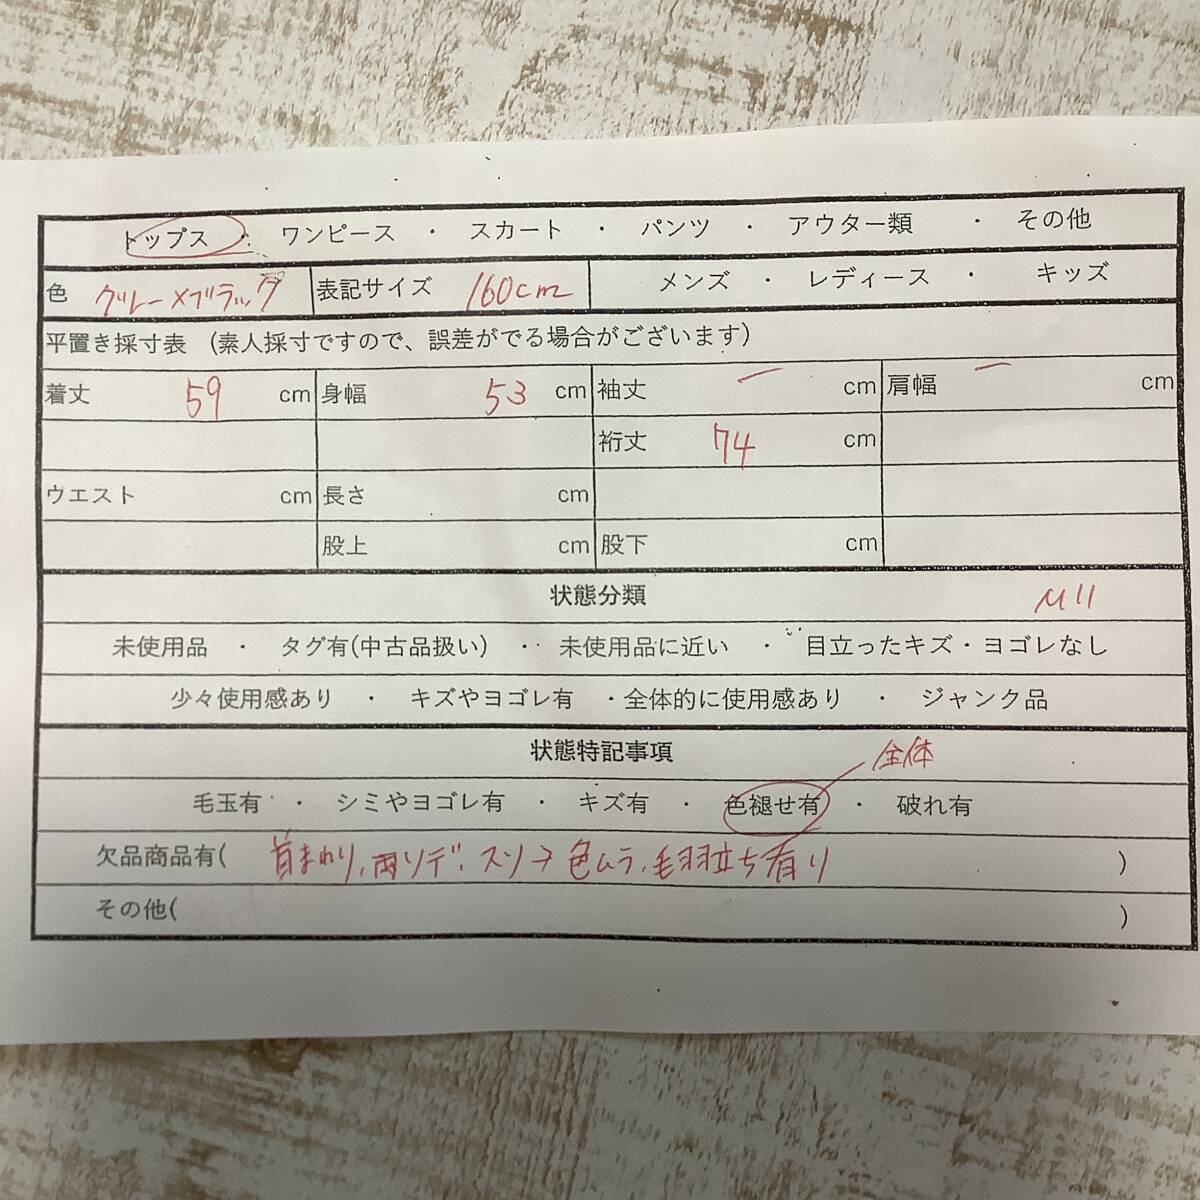 トップス ・ ワンピース ・ スカート ・ パンツ ・ アウター類 ・ その他
色 グレー×ブラック 表記サイズ 160cm メンズ ・ レディース ・ キッズ
平置き採寸表 (素人採寸ですので、誤差がでる場合がございます)
着丈 59 cm 身幅 53 cm 袖丈 ー cm 肩幅 ー cm
裄丈 74 cm
ウエスト cm 長さ cm
股上 cm 股下 cm
状態分類
未使用品 ・ タグ有(中古品扱い) ・ 未使用品に近い ・ 目立ったキズ・ヨゴレなし
少々使用感あり ・ キズやヨゴレ有 ・全体的に使用感あり ・ ジャンク品
状態特記事項 全体
毛玉有 ・ シミやヨゴレ有 ・ キズ有 ・ 色褪せ有 ・ 破れ有
欠品商品有( 首まわり、両ソデ、スソ→色ムラ、毛羽立ち有り )
その他( )